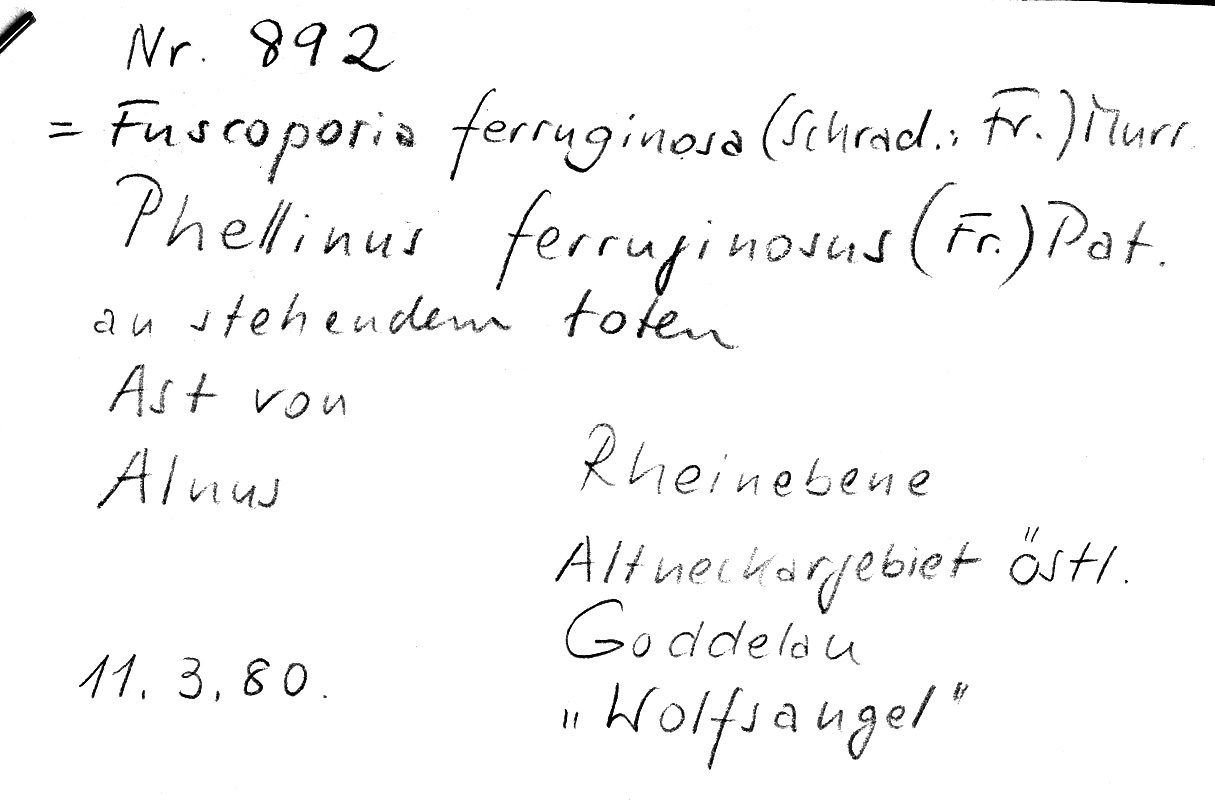 Nr. 892
= Fuscoporia ferruginosa (Schrad.: Fr.) Murr.
Phellinus ferruginosus (Fr.) Pat.
an stehendem toten
Ast von
Alnus
Rheinebene
Altneckargebiet östl.
Goddelau
11. 3. 80.
"Wolfsangel"